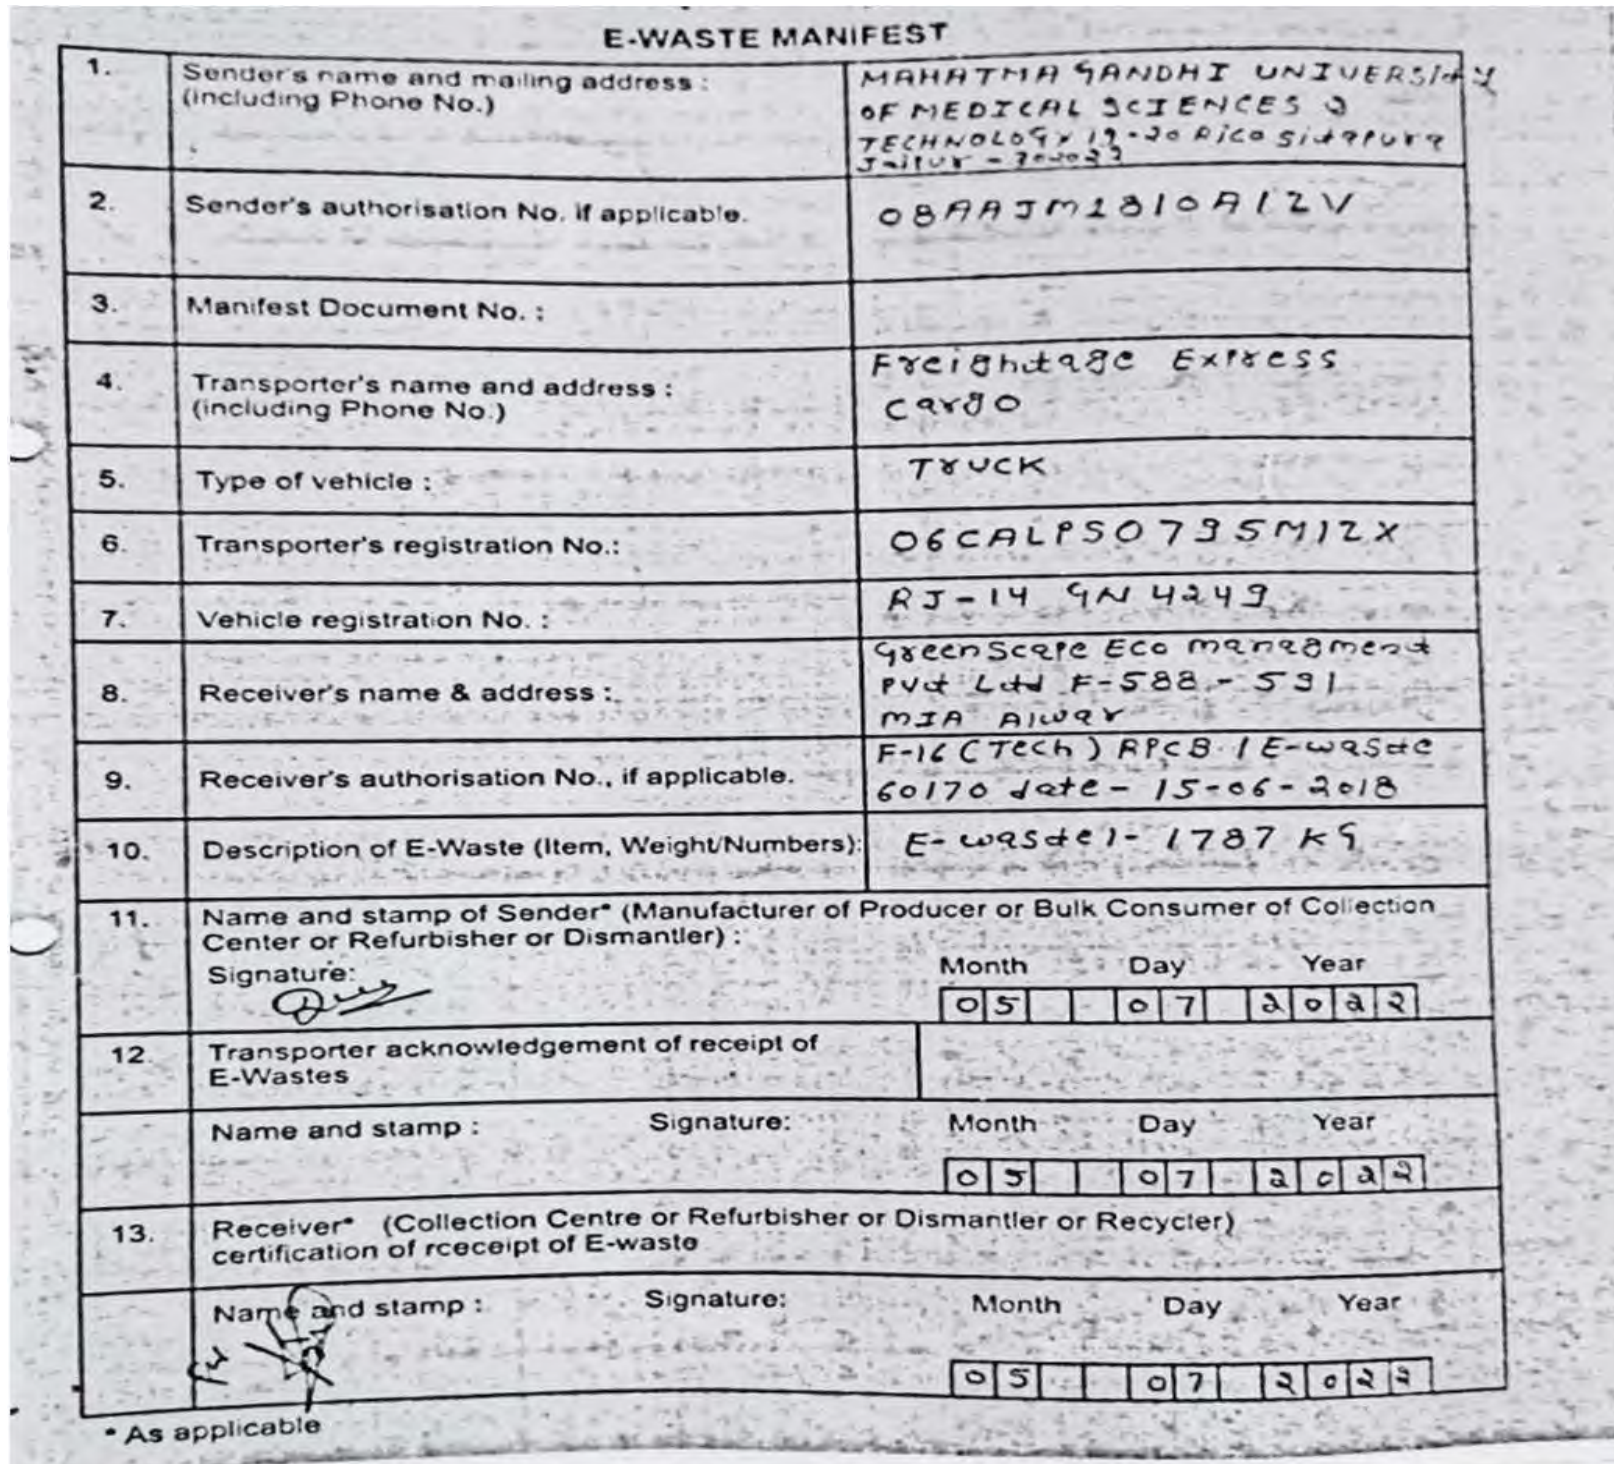 E-WASTE MANIFEST
1. Sender's name and mailing address : MAHATMA GANDHI UNIVERSITY
(including Phone No.) OF MEDICAL SCIENCES &
TECHNOLOGY 19-20 Rico Sitapura
Jaipur - 302022
2. Sender's authorisation No. if applicable. 08AAJM1810A1ZV
3. Manifest Document No. :
4. Transporter's name and address : Freightage Express
(including Phone No.) Cargo
5. Type of vehicle : Truck
6. Transporter's registration No.: 06CALPS0795M1ZX
7. Vehicle registration No. : RJ-14 GN 4249
8. Receiver's name & address : GreenScape Eco managment
Pvt Ltd F-588 - 591
MIA Alwar
9. Receiver's authorisation No., if applicable. F-16 (Tech) RPCB / E-waste
60170 date - 15-06-2018
10. Description of E-Waste (Item, Weight/Numbers): E-waste 1- 1787 KG
11. Name and stamp of Sender* (Manufacturer of Producer or Bulk Consumer of Collection
Center or Refurbisher or Dismantler) :
Signature: Month Day Year
05 07 2022
12. Transporter acknowledgement of receipt of
E-Wastes
Name and stamp : Signature: Month Day Year
05 07 2022
13. Receiver* (Collection Centre or Refurbisher or Dismantler or Recycler)
certification of rceceipt of E-waste
Name and stamp : Signature: Month Day Year
05 07 2022
* As applicable